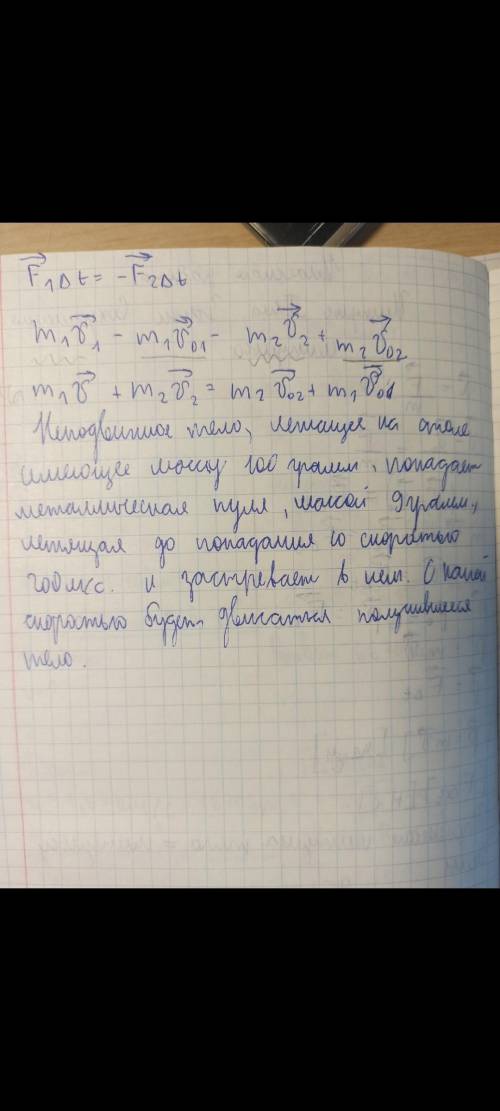 F₁Δt = -F₂Δt
m₁v₁ - m₁v₀₁ - m₂v₂ + m₂v₀₂
m₁v + m₂v₂ = m₂v₀₂ + m₁v₀₁
Неподвижное тело, лежащее на столе
имеющее массу 100 грамм, попадает
металлическая пуля, массой 9 грамм,
летящая до попадания со скоростью
и застревает в нем. С какой
скоростью будет двигаться получившееся
тело.